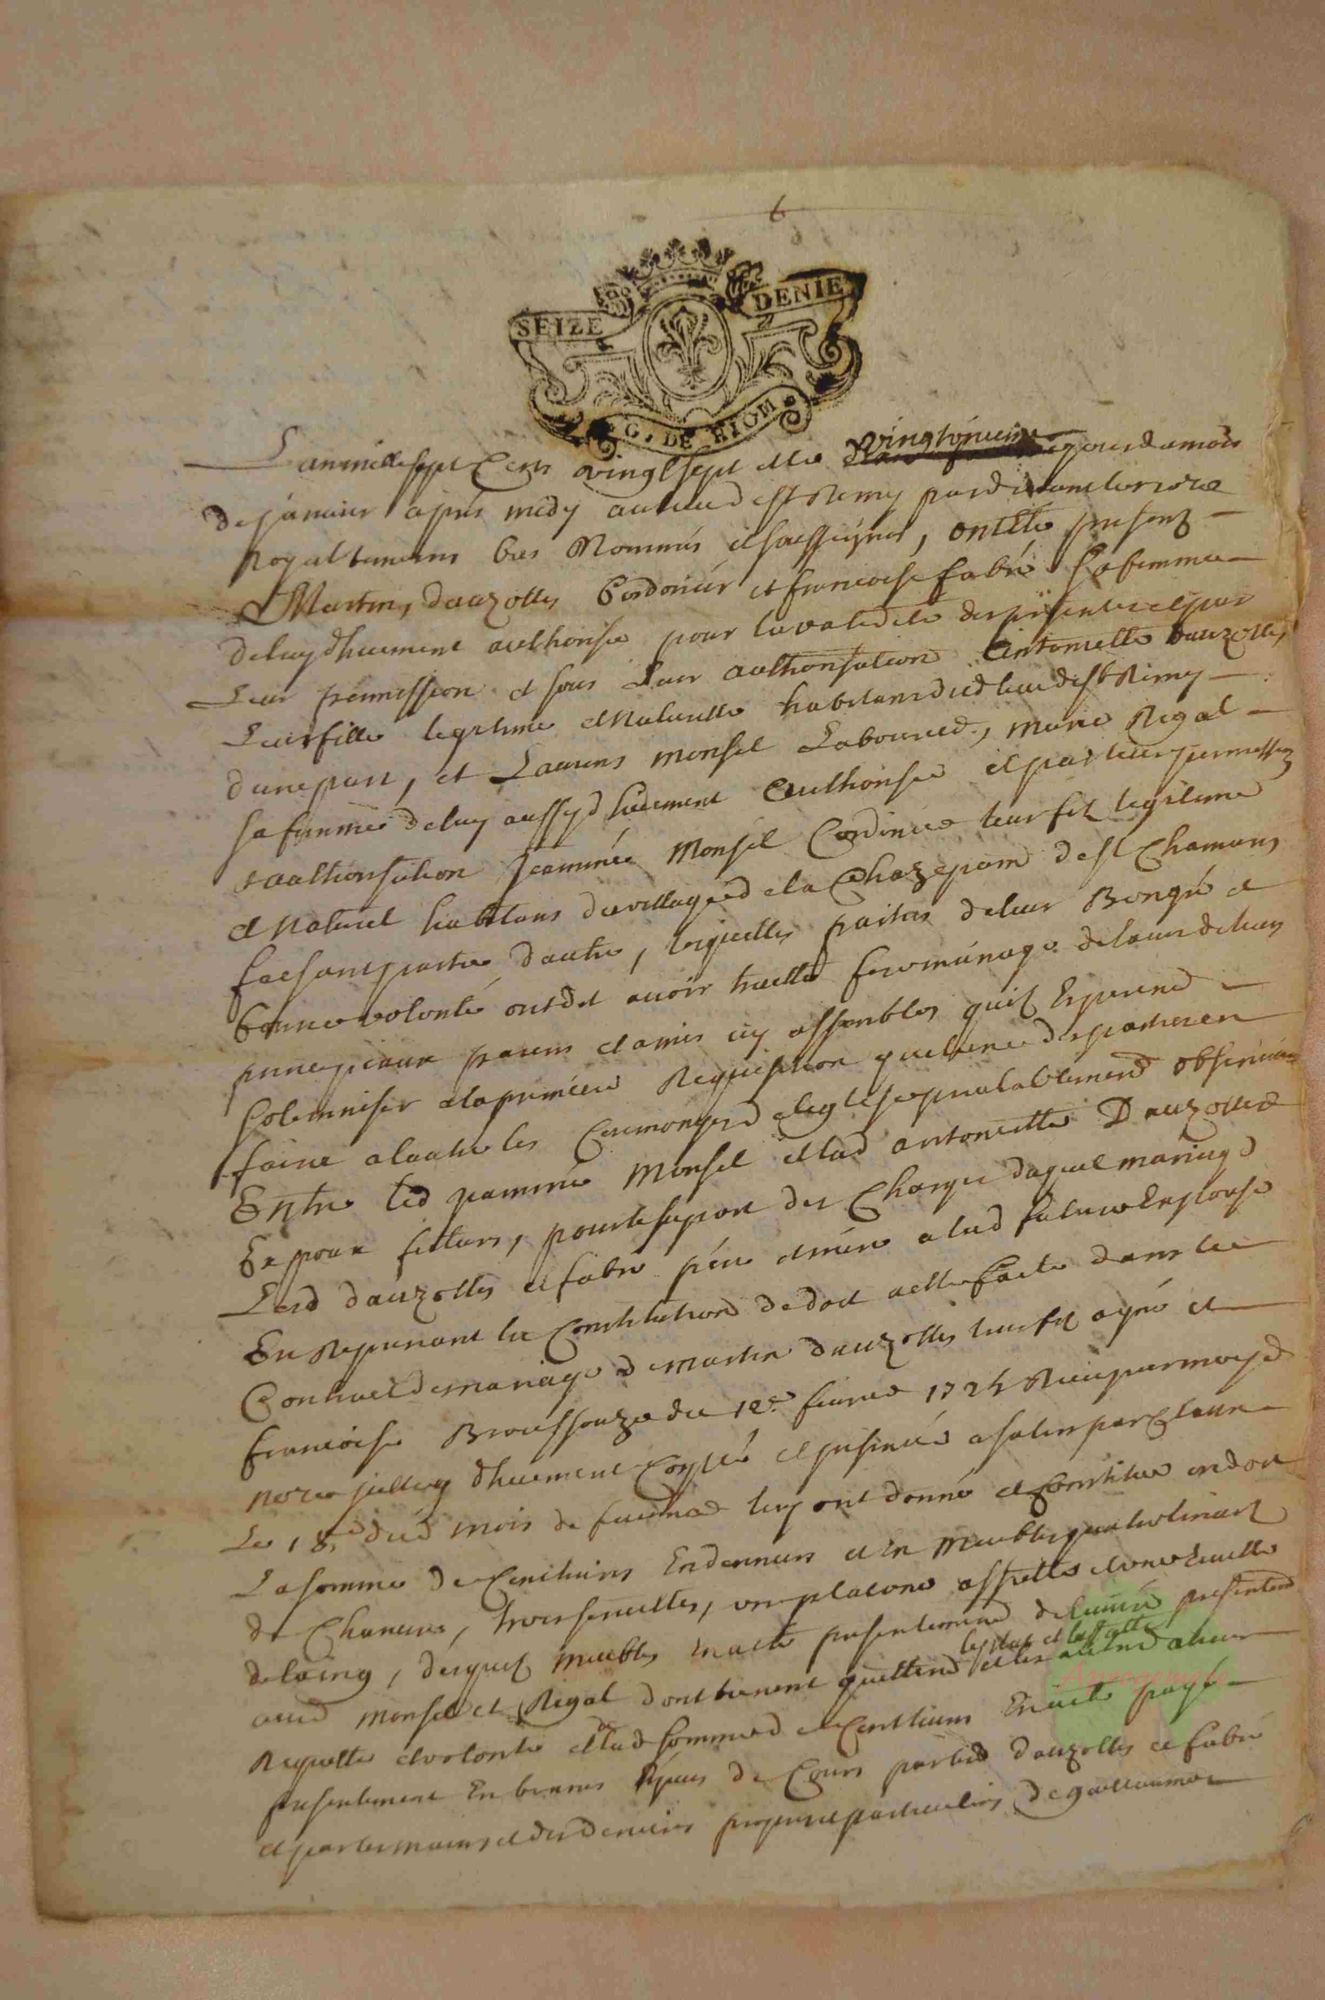 6
SEIZE DENIE
G. DE RIOM
L'an mille sept Cens vingt sept et le vingt jour du mois
de janvier apres midy au lieu de st Remy pardevant le nore
Royal temoins bas Nommés et soussignes, ont été presentz
Martin, dauzolles Cordonier et francoise fabre sa femme
de luy dhuement authorisée pour la validité des presentes et par
Leur permission et sous Leur authorisation Antoinette dauzolles
Leur fille legitime et Naturelle habitans dud lieu de st Remy
d'une part, et Laurens monsel Laboured, marie Regal
sa femme de luy aussy dhuement authorisée et par leur permission
et authorisation jeammée Monsel Cordinier leur filz legitime
et Naturel habitans du village de la Chaze parr de st Chamans
faisant partie d'autre, lesquelles parties de leur Bongré et
bonne volonté ont dit avoir traitté se mariage de l'avis de leurs
principaux parens et amis icy assembles quilz
solemniser a la premiere Requisition que l'une des parties en
faira a l'autre les Ceremonyes d'eglise prealablement observées
Entre led jeammée Monsel et lad antoinette Dauzolles
Expoux futurs, pour le suport des Charges duquel mariage
Lesd dauzolles et fabre pere et mere a lad future Espouse
En Reprenant la Constitution de dot a elle faite dans le
Contract de mariage de martin dauzolles leur filz ayné et
francoise Broussouze du 12e fevrier 1724 Reçu par moyd
nore dhuement Conllé et jnsinué a salers par
Le 18e dud mois de fevrier luy ont donné et Constitué en dot
La somme de Cent livres En deniers et en meubles quatre linceulz
de Chanvre, trois serviettes, un plat une assiette et une Ecuelle
destaing, desquelz meubles En acte presentement delivrée presentend
les plat et assiette
aud Monsel et Regal dont tienent quitte et les autres a leur
Requette et volonté et lad somme de Cent livres En acte payé
presentement En bonnes Espeices de Cours par led dauzolles et fabre
et par les mains et des deniers propres et particuliers de guillaume